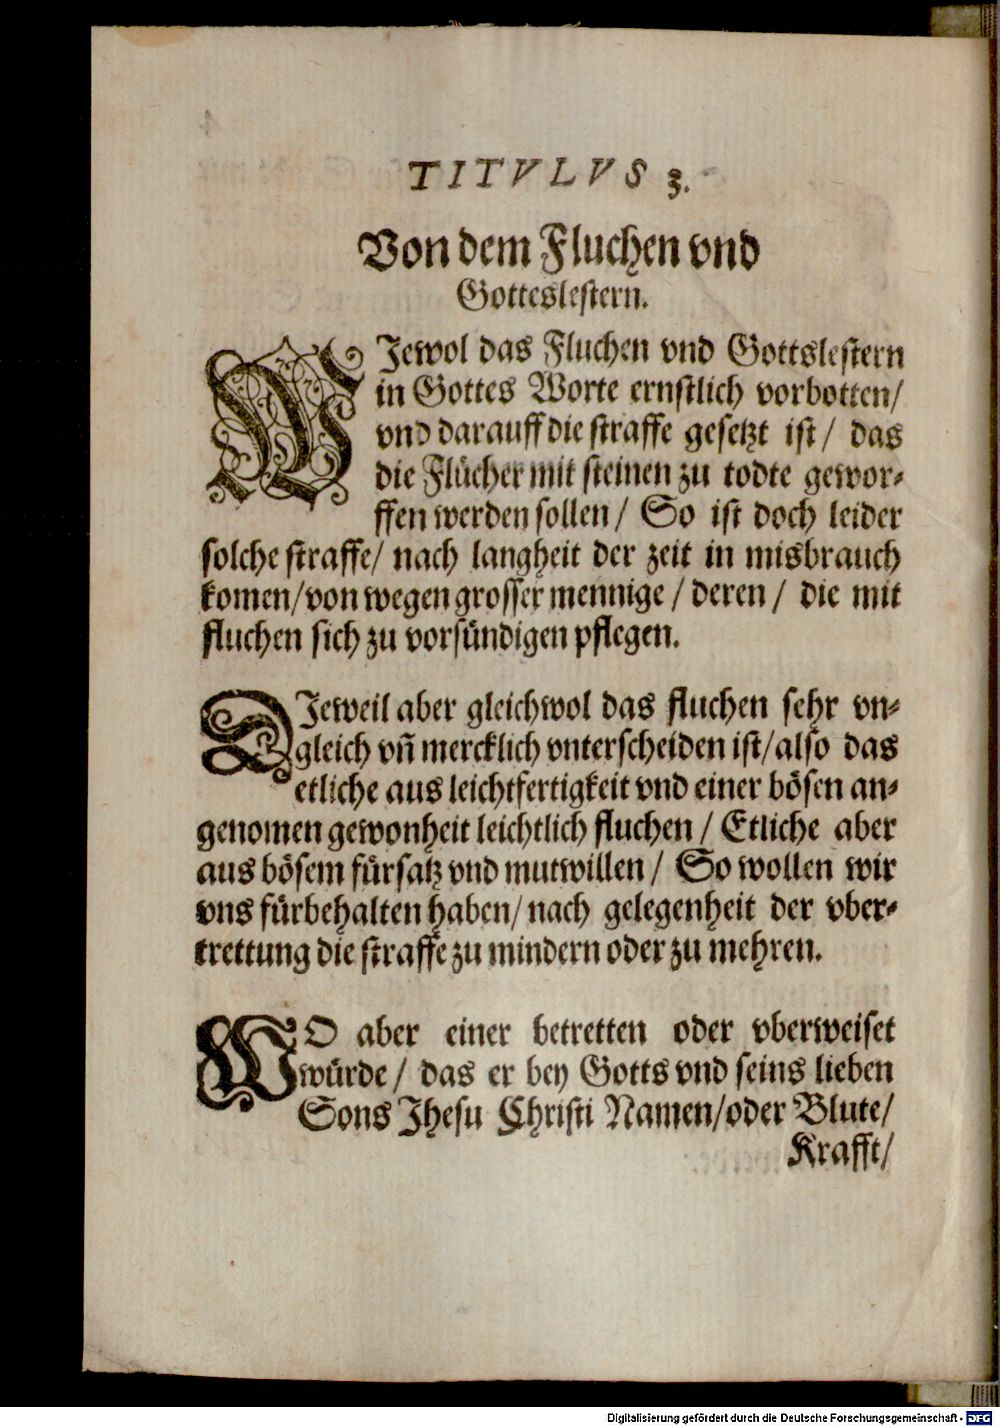 TITVLVS 3.
Von dem Fluchen vnd
Gotteslestern.
WJewol das Fluchen vnd Gottslestern
in Gottes Worte ernstlich vorbotten/
vnd darauff die straffe gesetzt ist/ das
die Flücher mit steinen zu todte gewor-
ffen werden sollen/ So ist doch leider
solche straffe/ nach langheit der zeit in misbrauch
komen/ von wegen grosser mennige/ deren/ die mit
fluchen sich zu vorsündigen pflegen.
DJeweil aber gleichwol das fluchen sehr vn-
gleich vñ mercklich vnterscheiden ist/ also das
etliche aus leichtfertigkeit vnd einer bösen an-
genomen gewonheit leichtlich fluchen/ Etliche aber
aus bösem fürsatz vnd mutwillen/ So wollen wir
vns fürbehalten haben/ nach gelegenheit der vber-
trettung die straffe zu mindern oder zu mehren.
WO aber einer betretten oder vberweiset
würde/ das er bey Gotts vnd seins lieben
Sons Jhesu Christi Namen/ oder Blute/
Krafft/
Digitalisierung gefördert durch die Deutsche Forschungsgemeinschaft - DFG